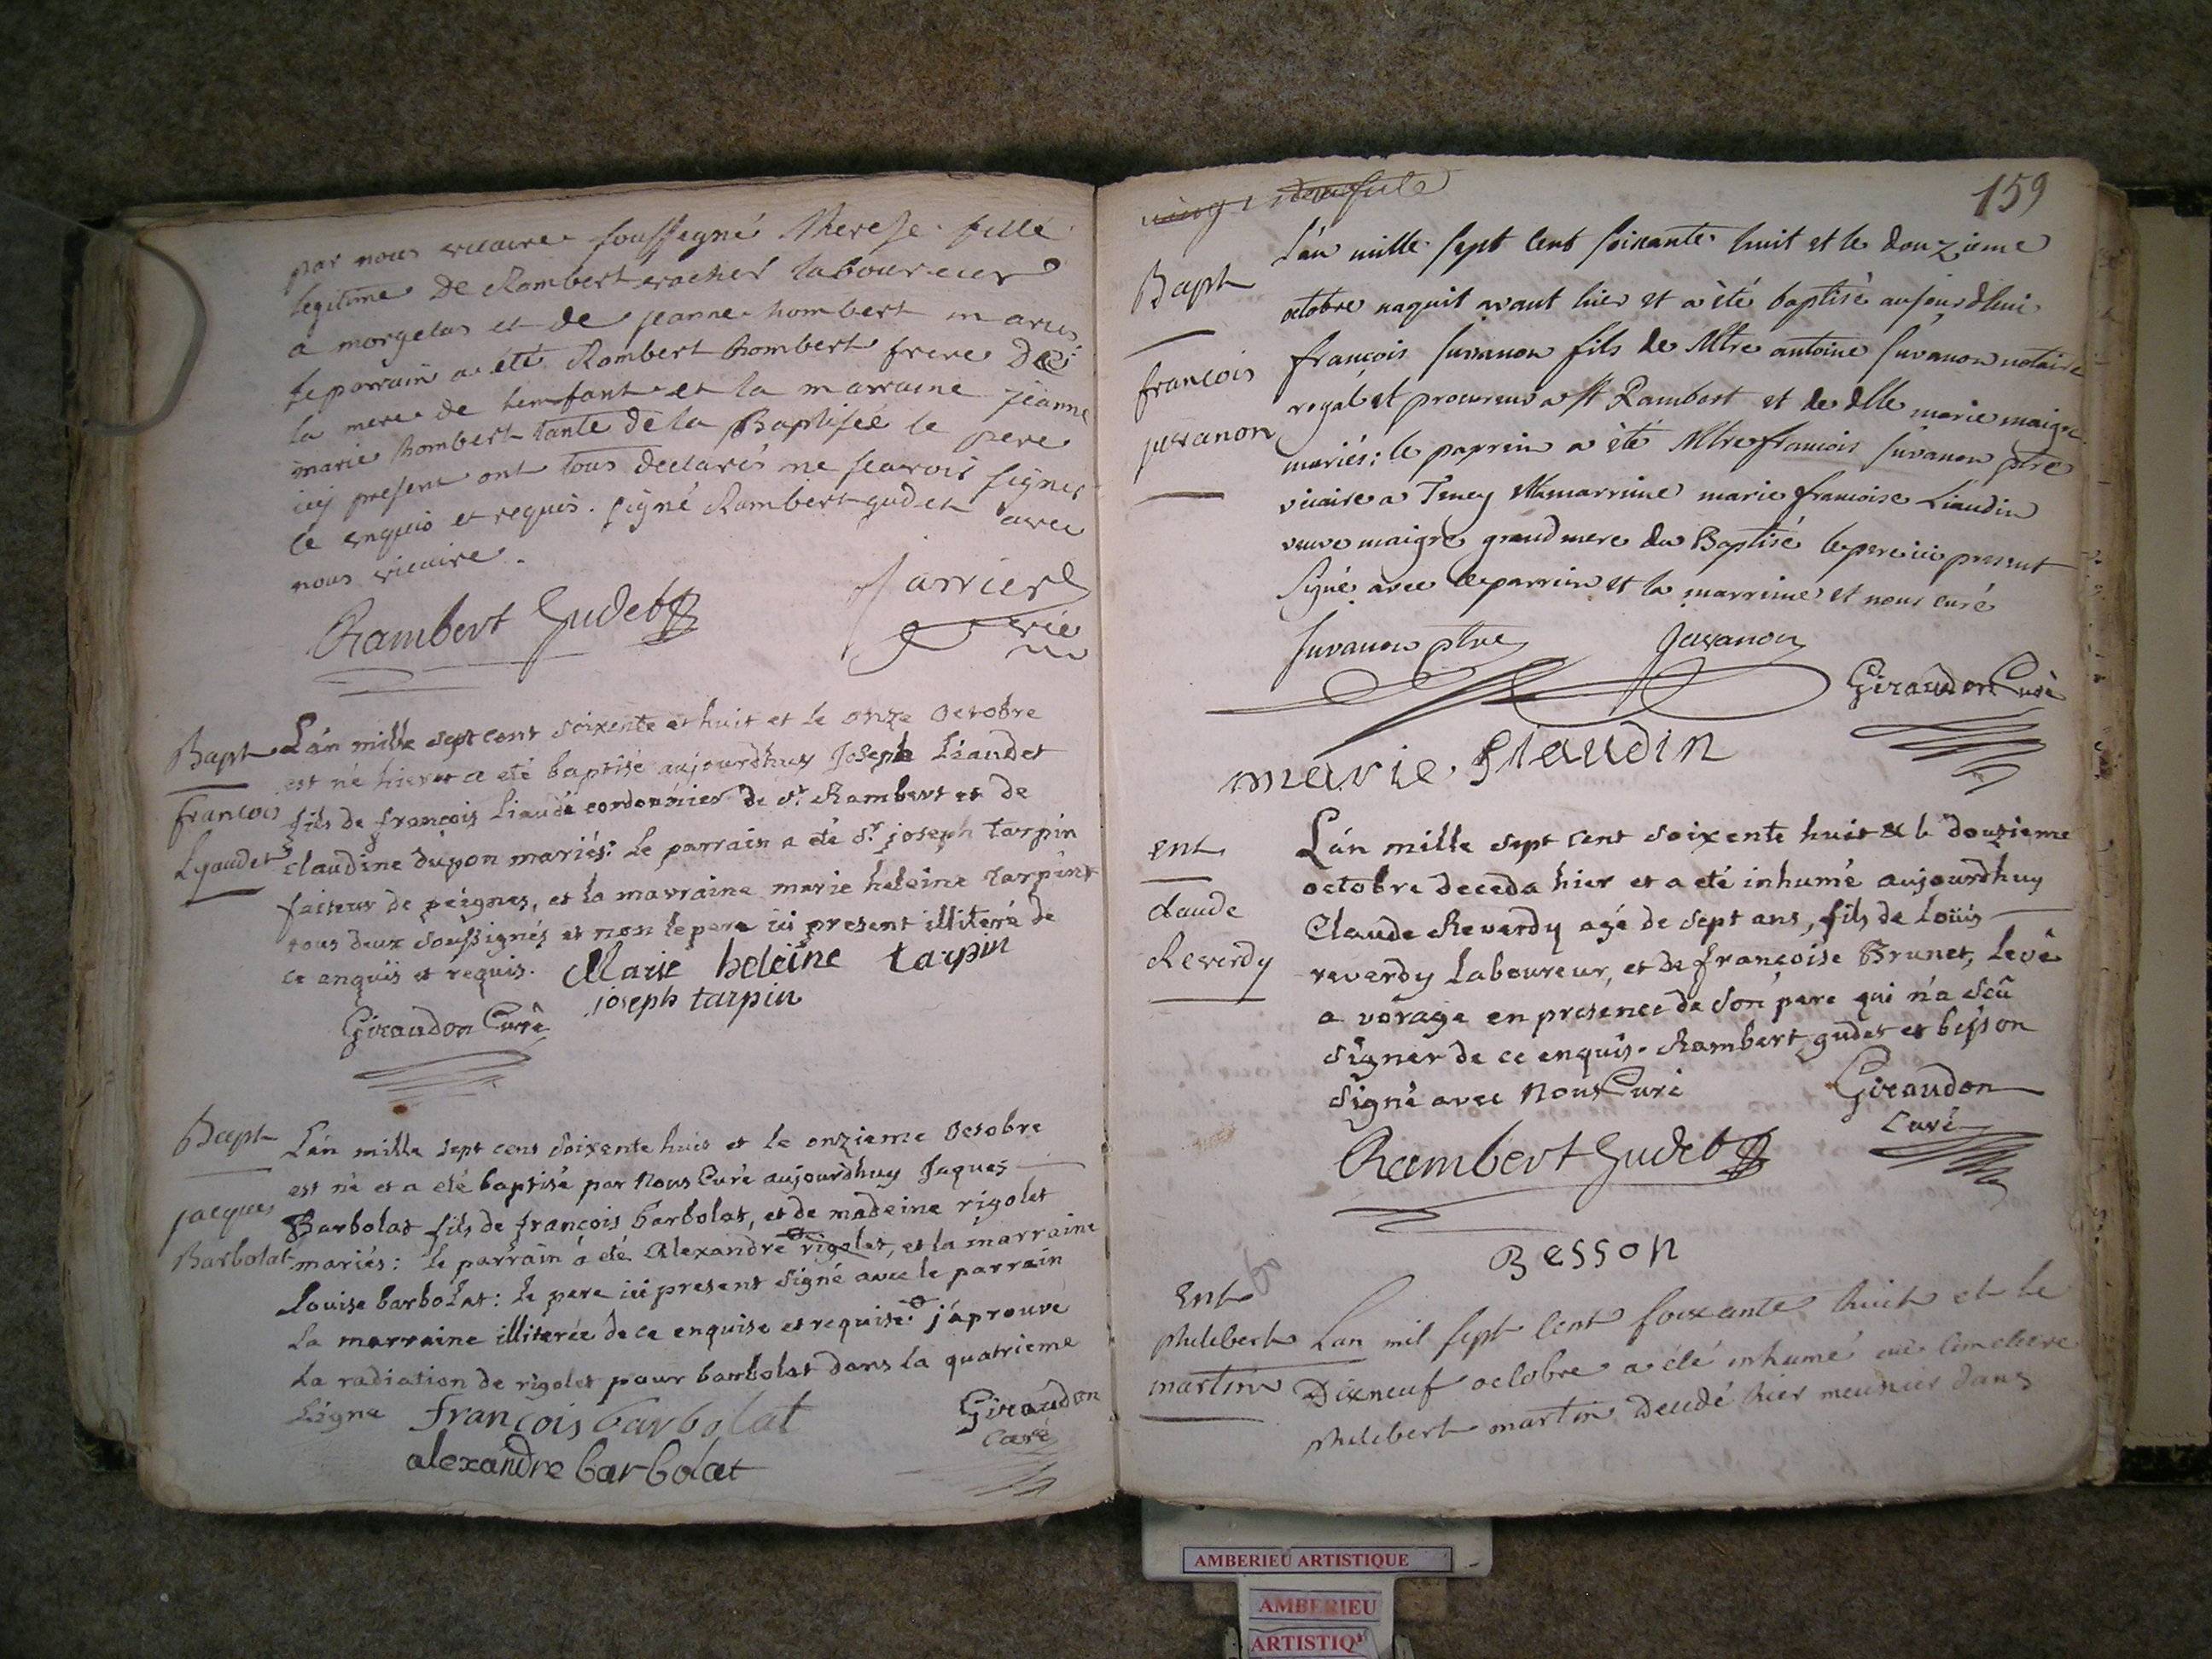 par nous vicaire soussegné Therese fille
legitime de Rambert vacher laboureur
a morgelas et de jeanne hombert maries
le parrain a été Rambert hombert frere de
la mere de lenfant et la marraine jeanne
marie hombert tante de la Baptisée le pere
icy present ont tous declarés ne scavoir signer
ce enquis et requis. signé Rambert gudet avec
nous vicaire.
Rambert Gudet
Jarrier
vic
Bapt
francois
Lyaudet
L'an mille sept cent soixente et huit et le onze octobre
est né hier et a eté baptisé aujourdhuy Joseph Liaudet
fils de françois liaudé cordonnier de st. Rambert et de
claudine dupon mariés: le parrain a eté sr. joseph tarpin
faiseur de peignes, et la marraine marie heleine tarpin
tous deux soussignés et non le pere ici present illiteré de
ce enquis et requis.
Marie heleine tarpin
joseph tarpin
Giraudon Curé
Bapt
jacques
Barbolat
L'an mille sept cens soixente huit et le onzieme octobre
est né et a eté baptisé par Nous Curé aujourdhuy Jaques
Barbolat fils de françois barbolat, et de madeine rigolet
mariés: le parrain a eté Alexandre rigolet, et la marraine
Louise barbolat: le pere ici present signé avec le parrain
la marraine illiterée de ce enquise et requise. j'aprouve
la radiation de rigolet pour barbolat dans la quatrieme
ligne
françois barbolat
alexandre barbolat
Giraudon
Curé
159
Bapt
francois
juvanon
L'an mille sept cent soixante huit et le douzieme
octobre naquit avant hier et a été baptisé aujourdhui
françois Juvanon fils de Mtre antoine Juvanon notaire
royal et procureur a st Rambert et de dlle marie maigre
mariés; le parrein a été Mtre francois Juvanon ptre
vicaire a Teney et la marrine marie francoise Liaudin
veuve maigre grand mere du Baptisé le pere ici present
signé avec le parrein et la marrine et nous curé
Juvanon ptre
Juvanon
Giraudon Curé
marie liaudin
ent
claude
Reverdy
L'an mille sept cent soixente huit & le douzieme
octobre deceda hier et a eté inhumé aujourdhuy
Claude Reverdy agé de sept ans, fils de Loüis
reverdy Laboureur, et de françoise Brunet, levé
a vorage en presence de son pere qui n'a sçû
signer de ce enquis. Rambert gudet et besson
signé avec Nous Curé
Giraudon
Curé
Rambert Gudet
Besson
Ent
philebert
martin
Lan mil sept cent soixante huit et le
Dixneuf octobre a été inhumé au cimetiere
philebert martin decedé hier meunier dans
AMBERIEU ARTISTIQUE
AMBERIEU
ARTISTIQ